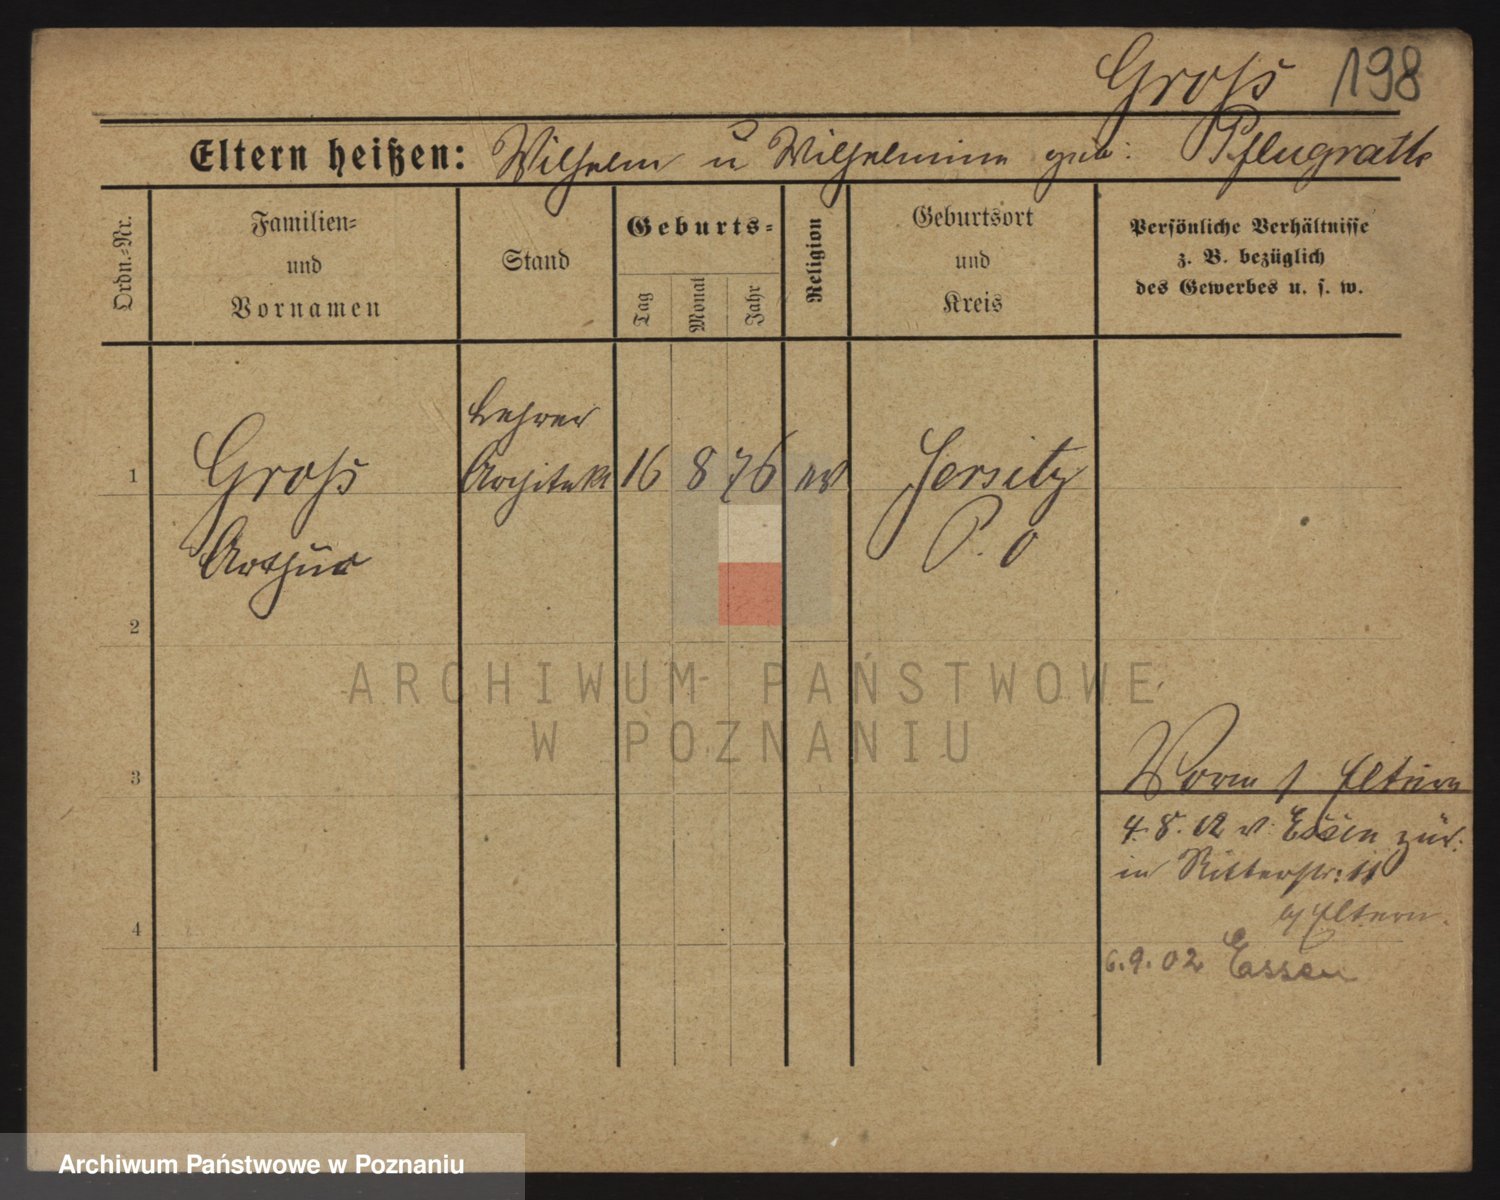 Groß 198
Eltern heißen: Wilhelm u Wilhelmine geb: Pflugrath
Ordn.-Nr.
Familien-
und
Vornamen
Stand
Geburts-
Tag
Monat
Jahr
Religion
Geburtsort
und
Kreis
Persönliche Verhältnisse
z. B. bezüglich
des Gewerbes u. s. w.
Lehrer
1 Groß Architekt 16 8 76 ev Jersitz
Arthur P. O
2
ARCHIWUM PAŃSTWOWE
W POZNANIU
3
Eltern
4. 8. 02 v. Essen zur:
in Ritterstr: 11
4
b/ Eltern.
6. 9. 02 Essen
Archiwum Państwowe w Poznaniu